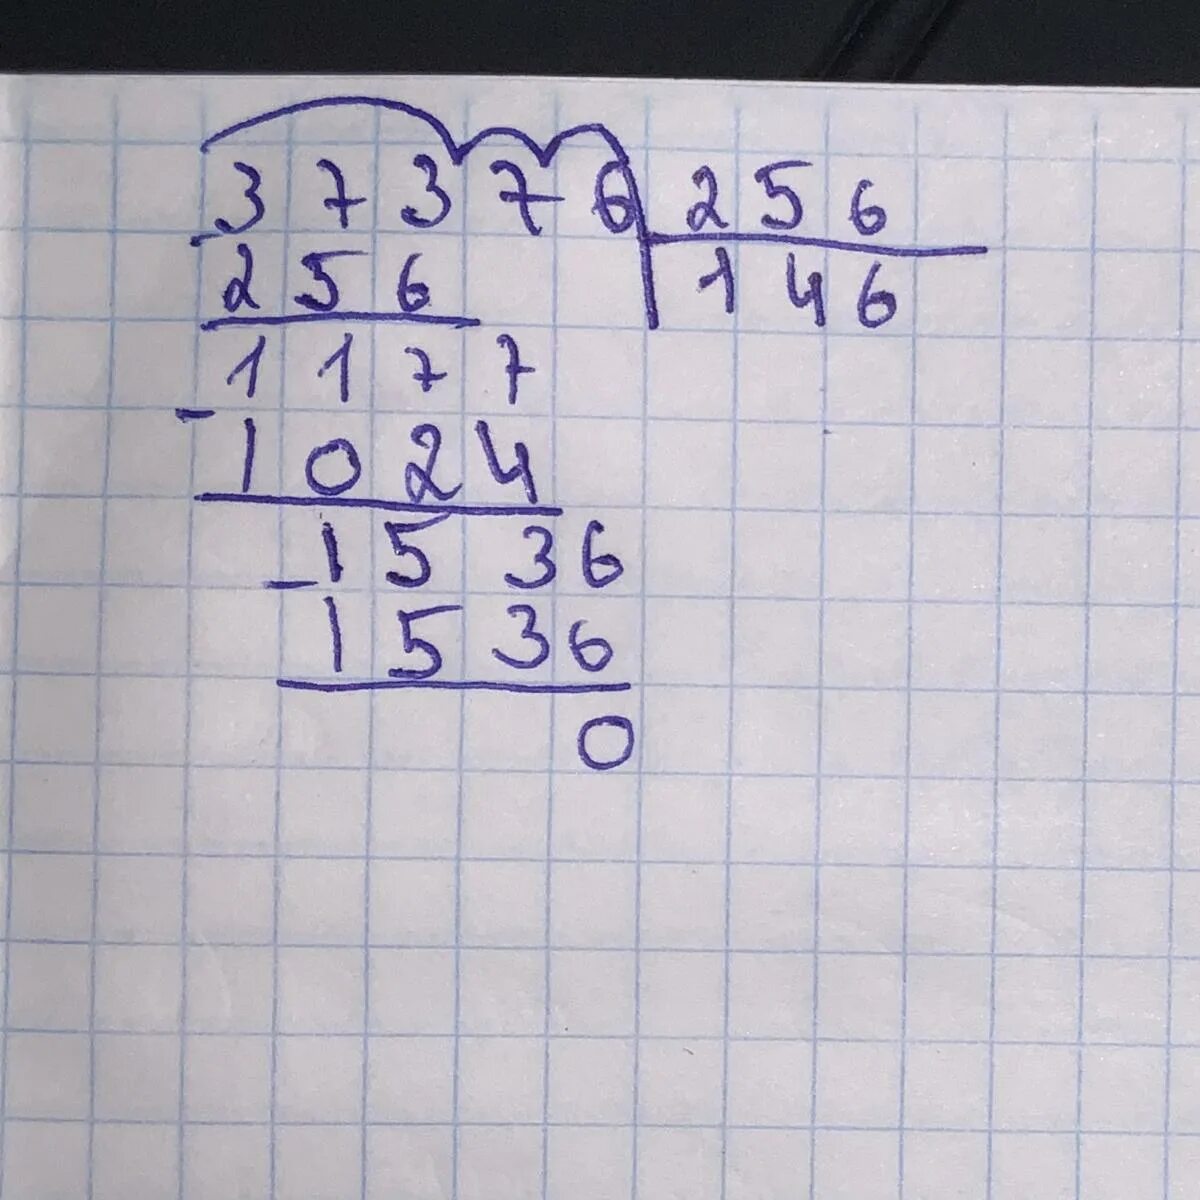 37376 256
256 146
1177
- 1024
1536
- 1536
0